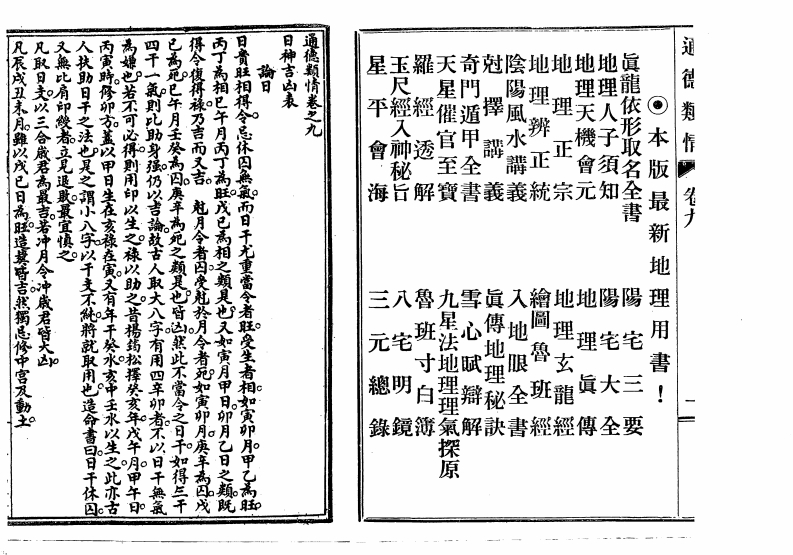 通德類情 卷九 一
◉本版最新地理用書！
眞龍依形取名全書 陽宅三要
地理人子須知 陽宅大全
地理天機會元 地理眞傳
地理正宗 地理玄龍經
地理辨正統 繪圖魯班經
陰陽風水講義 入地眼全書
尅擇講義 眞傳地理秘訣
奇門遁甲全書 雪心賦辯解
天星催官至寶 九星法地理理氣探原
羅經透解 魯班寸白簿
玉尺經入神秘旨 八宅明鏡
星平會海 三元總錄
通德類情卷之九
日神吉凶表
論日
日貴旺相得令。忌休囚無氣。而日干尤重。當令者旺。受生者相。如寅卯月。甲乙為旺。
丙丁為相。巳午月。丙丁為旺。戊己為相之類是也。又如寅月甲日。卯月乙日之類。既
得令復得祿。乃吉而又吉。尅月令者囚。受尅於月令者死。如寅卯月。庚辛為囚。戊
己為死。巳午月。壬癸為囚。庚辛為死之類是也。皆凶。然此不當令之日干。如得三干
四干一氣。則比助身强。仍以吉論。故古人取大八字。有用四辛卯者。不以日干無氣
為嫌也。若不可必得。則用印以生之。祿以助之。昔楊筠松擇癸亥年。戊午月。甲午日。
丙寅時。修卯方。蓋以甲日生在亥。祿在寅。又有年干癸水。亥中壬水以生之。此亦古
人扶助日干之法也。是之謂小八字。以干支不純將就取用也。造命書曰。日干休囚。
又無比肩印綬者。立見退敗。最宜慎之。
凡取日支。以三合歲君為最吉。若冲月令冲歲君皆大凶。
凡辰戌丑未月。雖以戊己日為旺。造葬皆吉。然獨忌修中宮及動土。